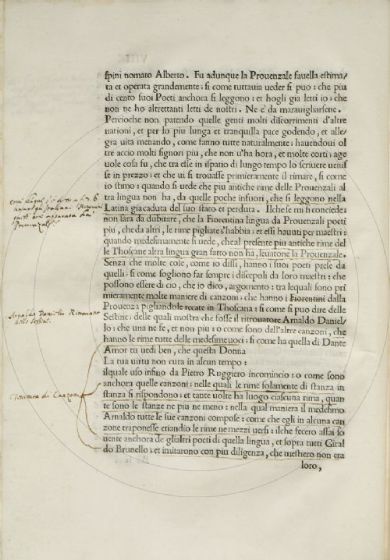 spini nomato Alberto. Fu adunque la Prouenzale fauella estima/
ta et operata grandemente: si come tuttauia ueder si puo: che piu
di cento suoi Poeti anchora si leggono: et hogli gia letti io: che
non ne ho altrettanti letti de nostri. Ne è da marauigliarsene.
Percioche non patendo quelle genti molti discorrimenti d'altre
nationi, et per lo piu lunga et tranquilla pace godendo, et alle/
gra uita menando, come fanno tutte naturalmente: hauendoui ol
tre accio molti signori piu, che non u'ha hora, et molte corti: age
uole cosa fu, che tra esse in ispatio di lungo tempo lo scriuere uenis
se in prezzo: et che ui si trouasse primieramente il rimare, si come
io stimo: quando si uede che piu antiche rime delle Prouenzali al
tra lingua non ha, da quelle poche infuori, che si leggono nella
Latina gia caduta del suo stato et perduta. Ilche se mi si conciede:
non sara da dubitare, che la Fiorentina lingua da Prouenzali poeti
piu, che da altri, le rime pigliate s'habbia: et essi hauuti per maestri:
quando medesimamente si uede, che al presente piu antiche rime del
le Thoscane altra lingua gran fatto non ha, leuatone la Prouenzale.
Senza che molte cose, come io dissi, hanno i suoi poeti prese da
quelli: si come sogliono far sempre i discepoli da loro maestri: che
possono essere di cio, che io dico, argomento: tra lequali sono pri
mieramente molte maniere di canzoni: che hanno i Fiorentini dalla
Prouenza pigliandole recate in Thoscana: si come si puo dire delle
Sestine: delle quali mostra che fosse il ritrouatore Arnaldo Daniel/
lo: che una ne fe, et non piu: o come sono dell'altre canzoni, che
hanno le rime tutte delle medesime uoci: si come ha quella di Dante
Amor tu uedi ben, che questa Donna
La tua uirtu non cura in alcun tempo:
ilquale uso infino da Pietro Ruggiero incomincio: o come sono
anchora quelle canzoni: nelle quali le rime solamente di stanza in
stanza si rispondono: et tante uolte ha luogo ciascuna rima, quan
te sono le stanze ne piu ne meno: nella qual maniera il medesimo
Arnaldo tutte le sue canzoni compose: come che egli in alcuna can
zone traponesse etiandio le rime ne mezzi uersi: ilche fecero assai so
uente anchora de gli altri poeti di quella lingua, et sopra tutti Giral
do Brunello: et imitarono con piu diligenza, che mestiero non era
loro,
Arnaldo Daniello
delle Sestine.
Maniera di Canzoni